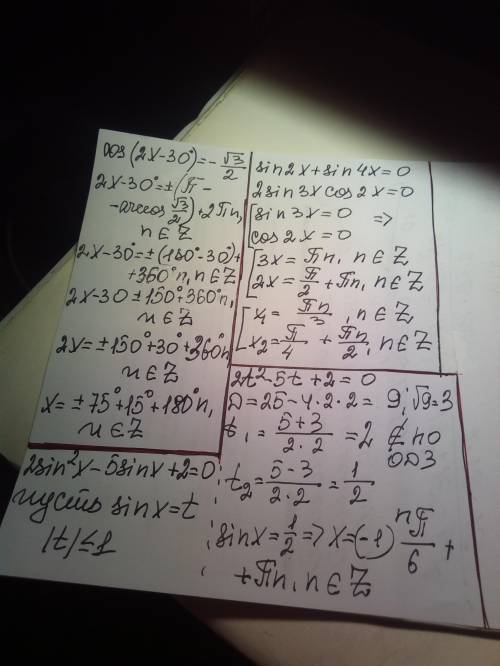 cos(2x-30°)=-√3/2
2x-30°=±(π-
-arccos √3/2)+2πn,
n∈Z
2x-30°=±(180°-30°)+
+360°n, n∈Z
2x-30 ±150°+360°n,
n∈Z
2x=±150°+30°+360°n
n∈Z
x=±75°+15°+180°n,
n∈Z
sin2x+sin4x=0
2sin3xcos2x=0
[sin3x=0 =>
cos2x=0
[3x=πn, n∈Z
2x=π/2+πn, n∈Z
[x₁=πn/3, n∈Z
x₂=π/4+πn/2, n∈Z
2sin²x-5sinx+2=0;
пусть sinx=t
|t|≤1
2t²-5t+2=0
D=25-4·2·2=9; √9=3
t₁=(5+3)/(2·2)=2 ∉ по
ОДЗ
t₂=(5-3)/(2·2)=1/2
sinx=1/2 => x=(-1)ⁿ π/6 +
+πn, n∈Z